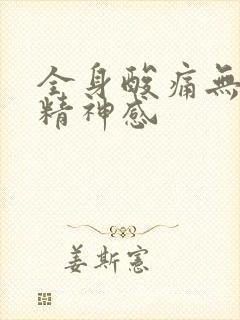 全身酸痛無
精神感
姜斯憲